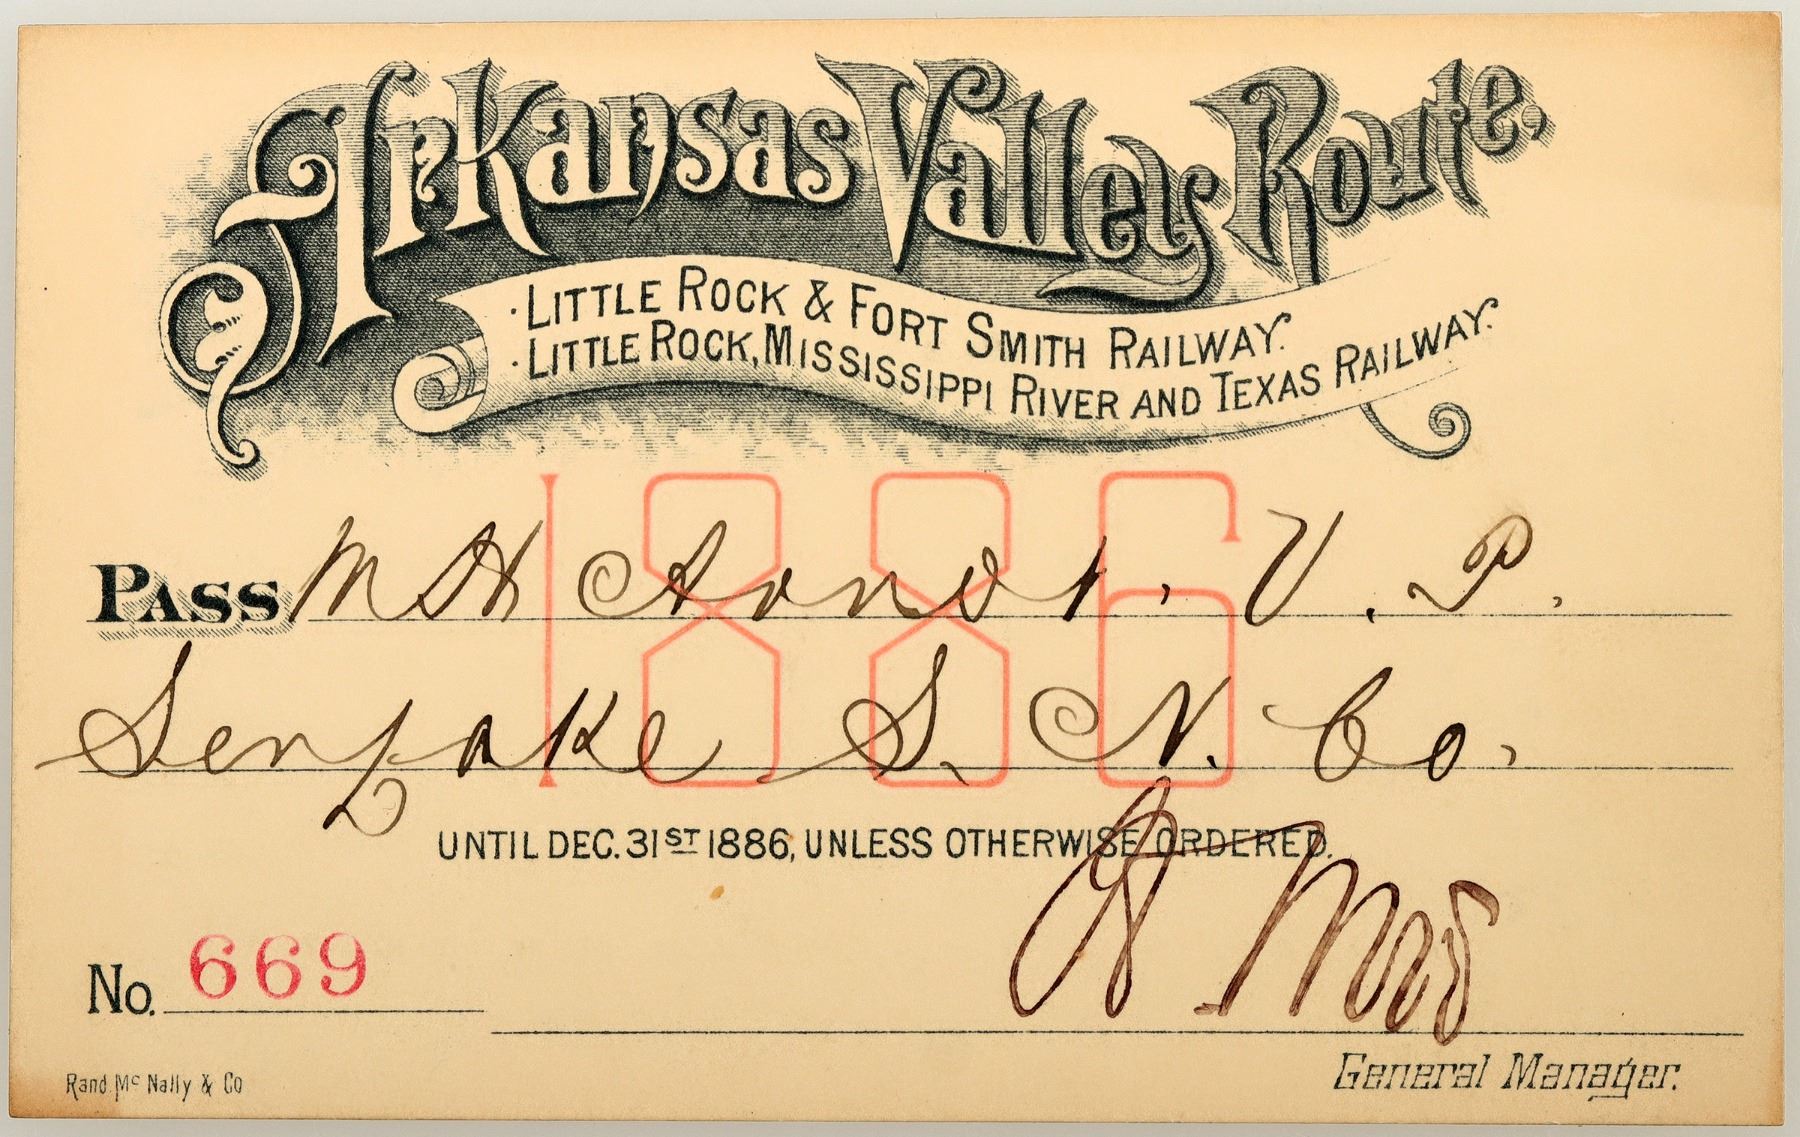 Arkansas Valley Route.
· LITTLE ROCK & FORT SMITH RAILWAY.
· LITTLE ROCK, MISSISSIPPI RIVER AND TEXAS RAILWAY.
1886
PASS M H Arnot. V. P.
S. N. Co.
UNTIL DEC. 31ST 1886, UNLESS OTHERWISE ORDERED.
No. 669
General Manager.
Rand McNally & Co